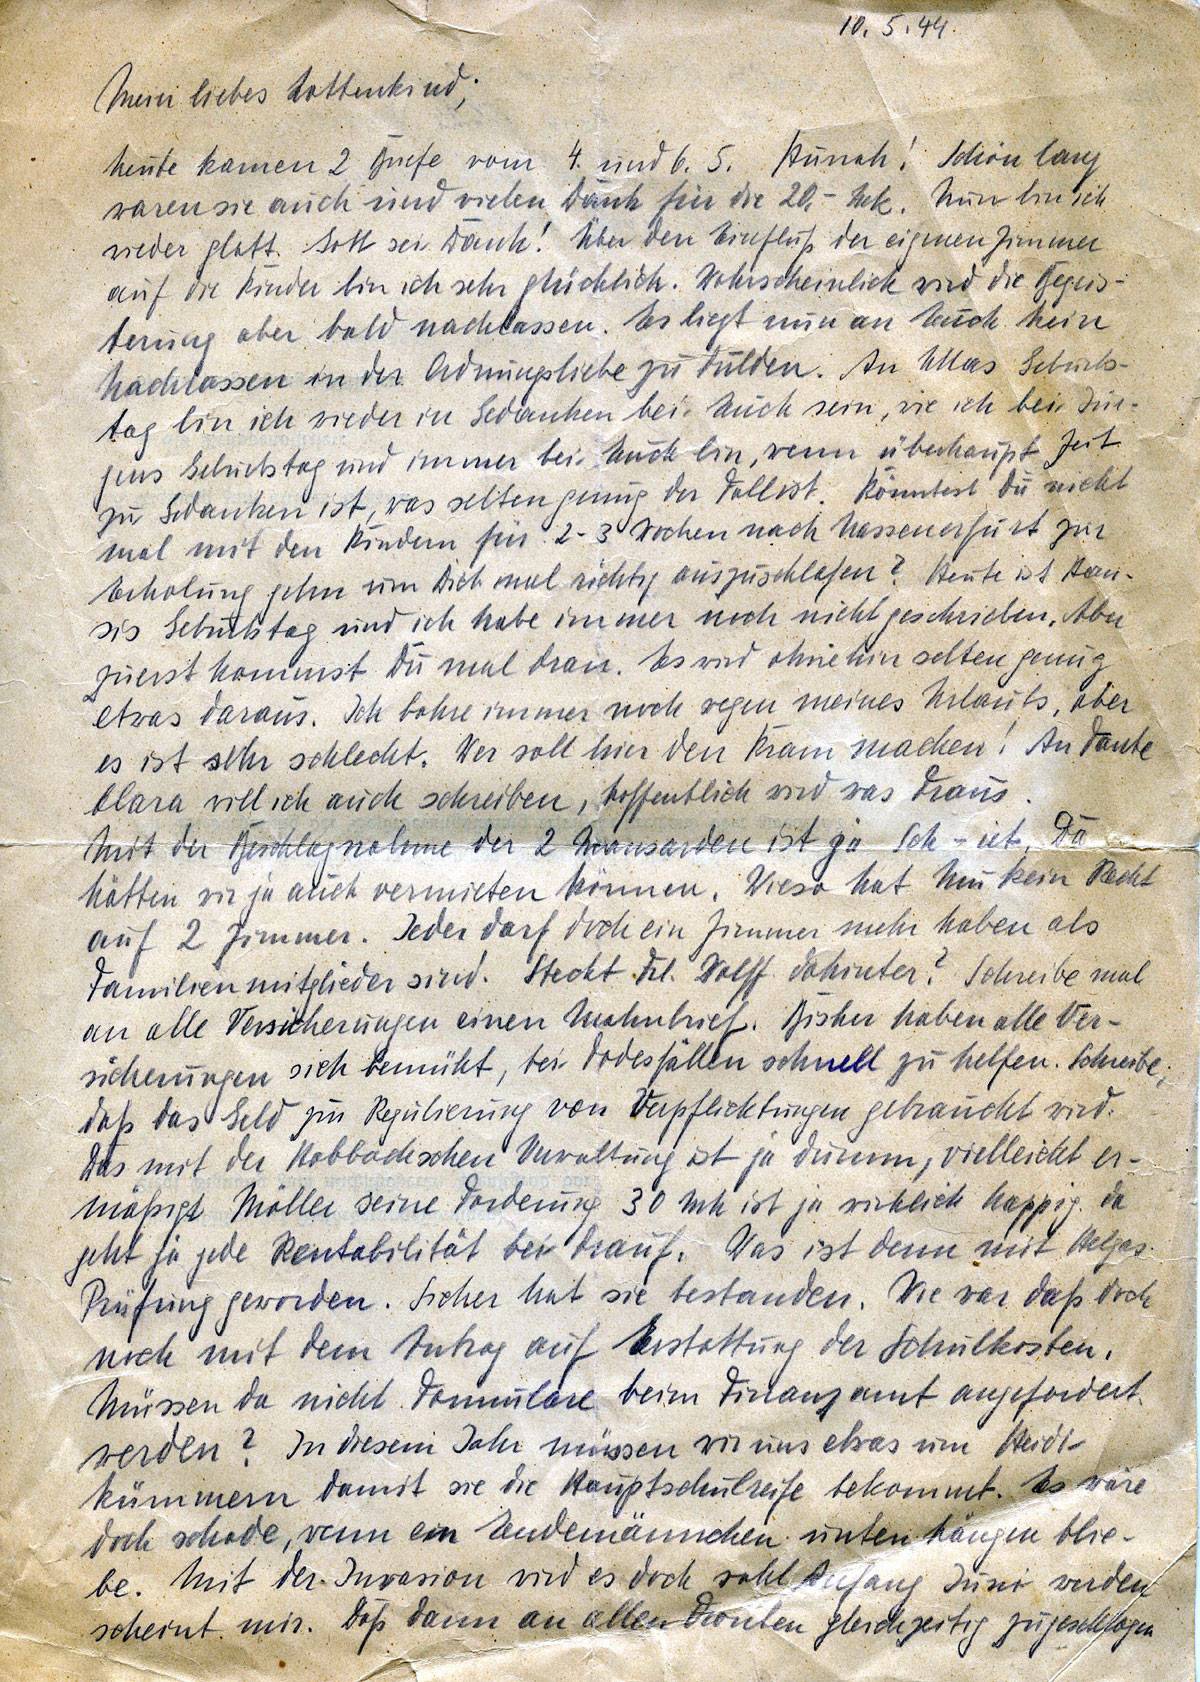 10. 5. 44.
Mein liebes Lottenkind,
heute kamen 2 Briefe vom 4. und 6. 5. Hurrah! Schön lang
waren sie auch und vielen Dank für die 20,- Mk. Nun bin ich
wieder glatt. Gott sei Dank! Über den Einfluß der eigenen Zimmer
auf die Kinder bin ich sehr glücklich. Wahrscheinlich wird die Begeis-
terung aber bald nachlassen. Es liegt nun an Euch kein
Nachlassen in der Ordnungsliebe zu dulden. An Ullas Geburts-
tag bin ich wieder in Gedanken bei Euch sein, wie ich bei Jür-
gens Geburtstag und immer bei Euch bin, wenn überhaupt Zeit
zu Gedanken ist, was selten genug der Fall ist. Könntest Du nicht
mal mit den Kindern für 2-3 Wochen nach Wassenerfurt zur
Erholung gehn um Dich mal richtig auszuschlafen? Heute ist Han-
sis Geburtstag und ich habe immer noch nicht geschrieben. Aber
zuerst kommst Du mal dran. Es wird ohnehin selten genug
etwas daraus. Ich bohre immer noch wegen meines Urlaubs, aber
es ist sehr schlecht. Wer soll hier den Kram machen! An Tante
Clara will ich auch schreiben, hoffentlich wird was draus.
Mit der Beschlagnahme der 2 Mansarden ist ja Sch-iet. Da
hätten wir ja auch vermieten können. Wieso hat Mu kein Recht
auf 2 Zimmer. Jeder darf doch ein Zimmer mehr haben als
Familienmitglieder sind. Steckt Frl. Wolff dahinter? Schreibe mal
an alle Versicherungen einen Mahnbrief. Bisher haben alle Ver-
sicherungen sich bemüht, bei Todesfällen schnell zu helfen. Schreibe,
daß das Geld zur Regulierung von Verpflichtungen gebraucht wird.
Das mit der Verwaltung ist ja dumm, vielleicht er-
mäßigt Möller seine Forderung 30 Mk ist ja wirklich happig. da
geht ja jede Rentabilität bei drauf. Was ist denn mit Helgas
Prüfung geworden. Sicher hat sie bestanden. Wie war daß doch
noch mit dem Antrag auf Erstattung der Schulkosten.
Müssen da nicht Formulare beim Finanzamt angefordert
werden? In diesem Jahr müssen wir uns etwas um Heidi
kümmern damit sie die Hauptschulreife bekommt. Es wäre
doch schade, wenn ein Endemännchen unten hängen blie-
be. Mit der Invasion wird es doch wohl Anfang Juni werden
scheint mir. Daß dann an allen Fronten gleichzeitig zugeschlagen